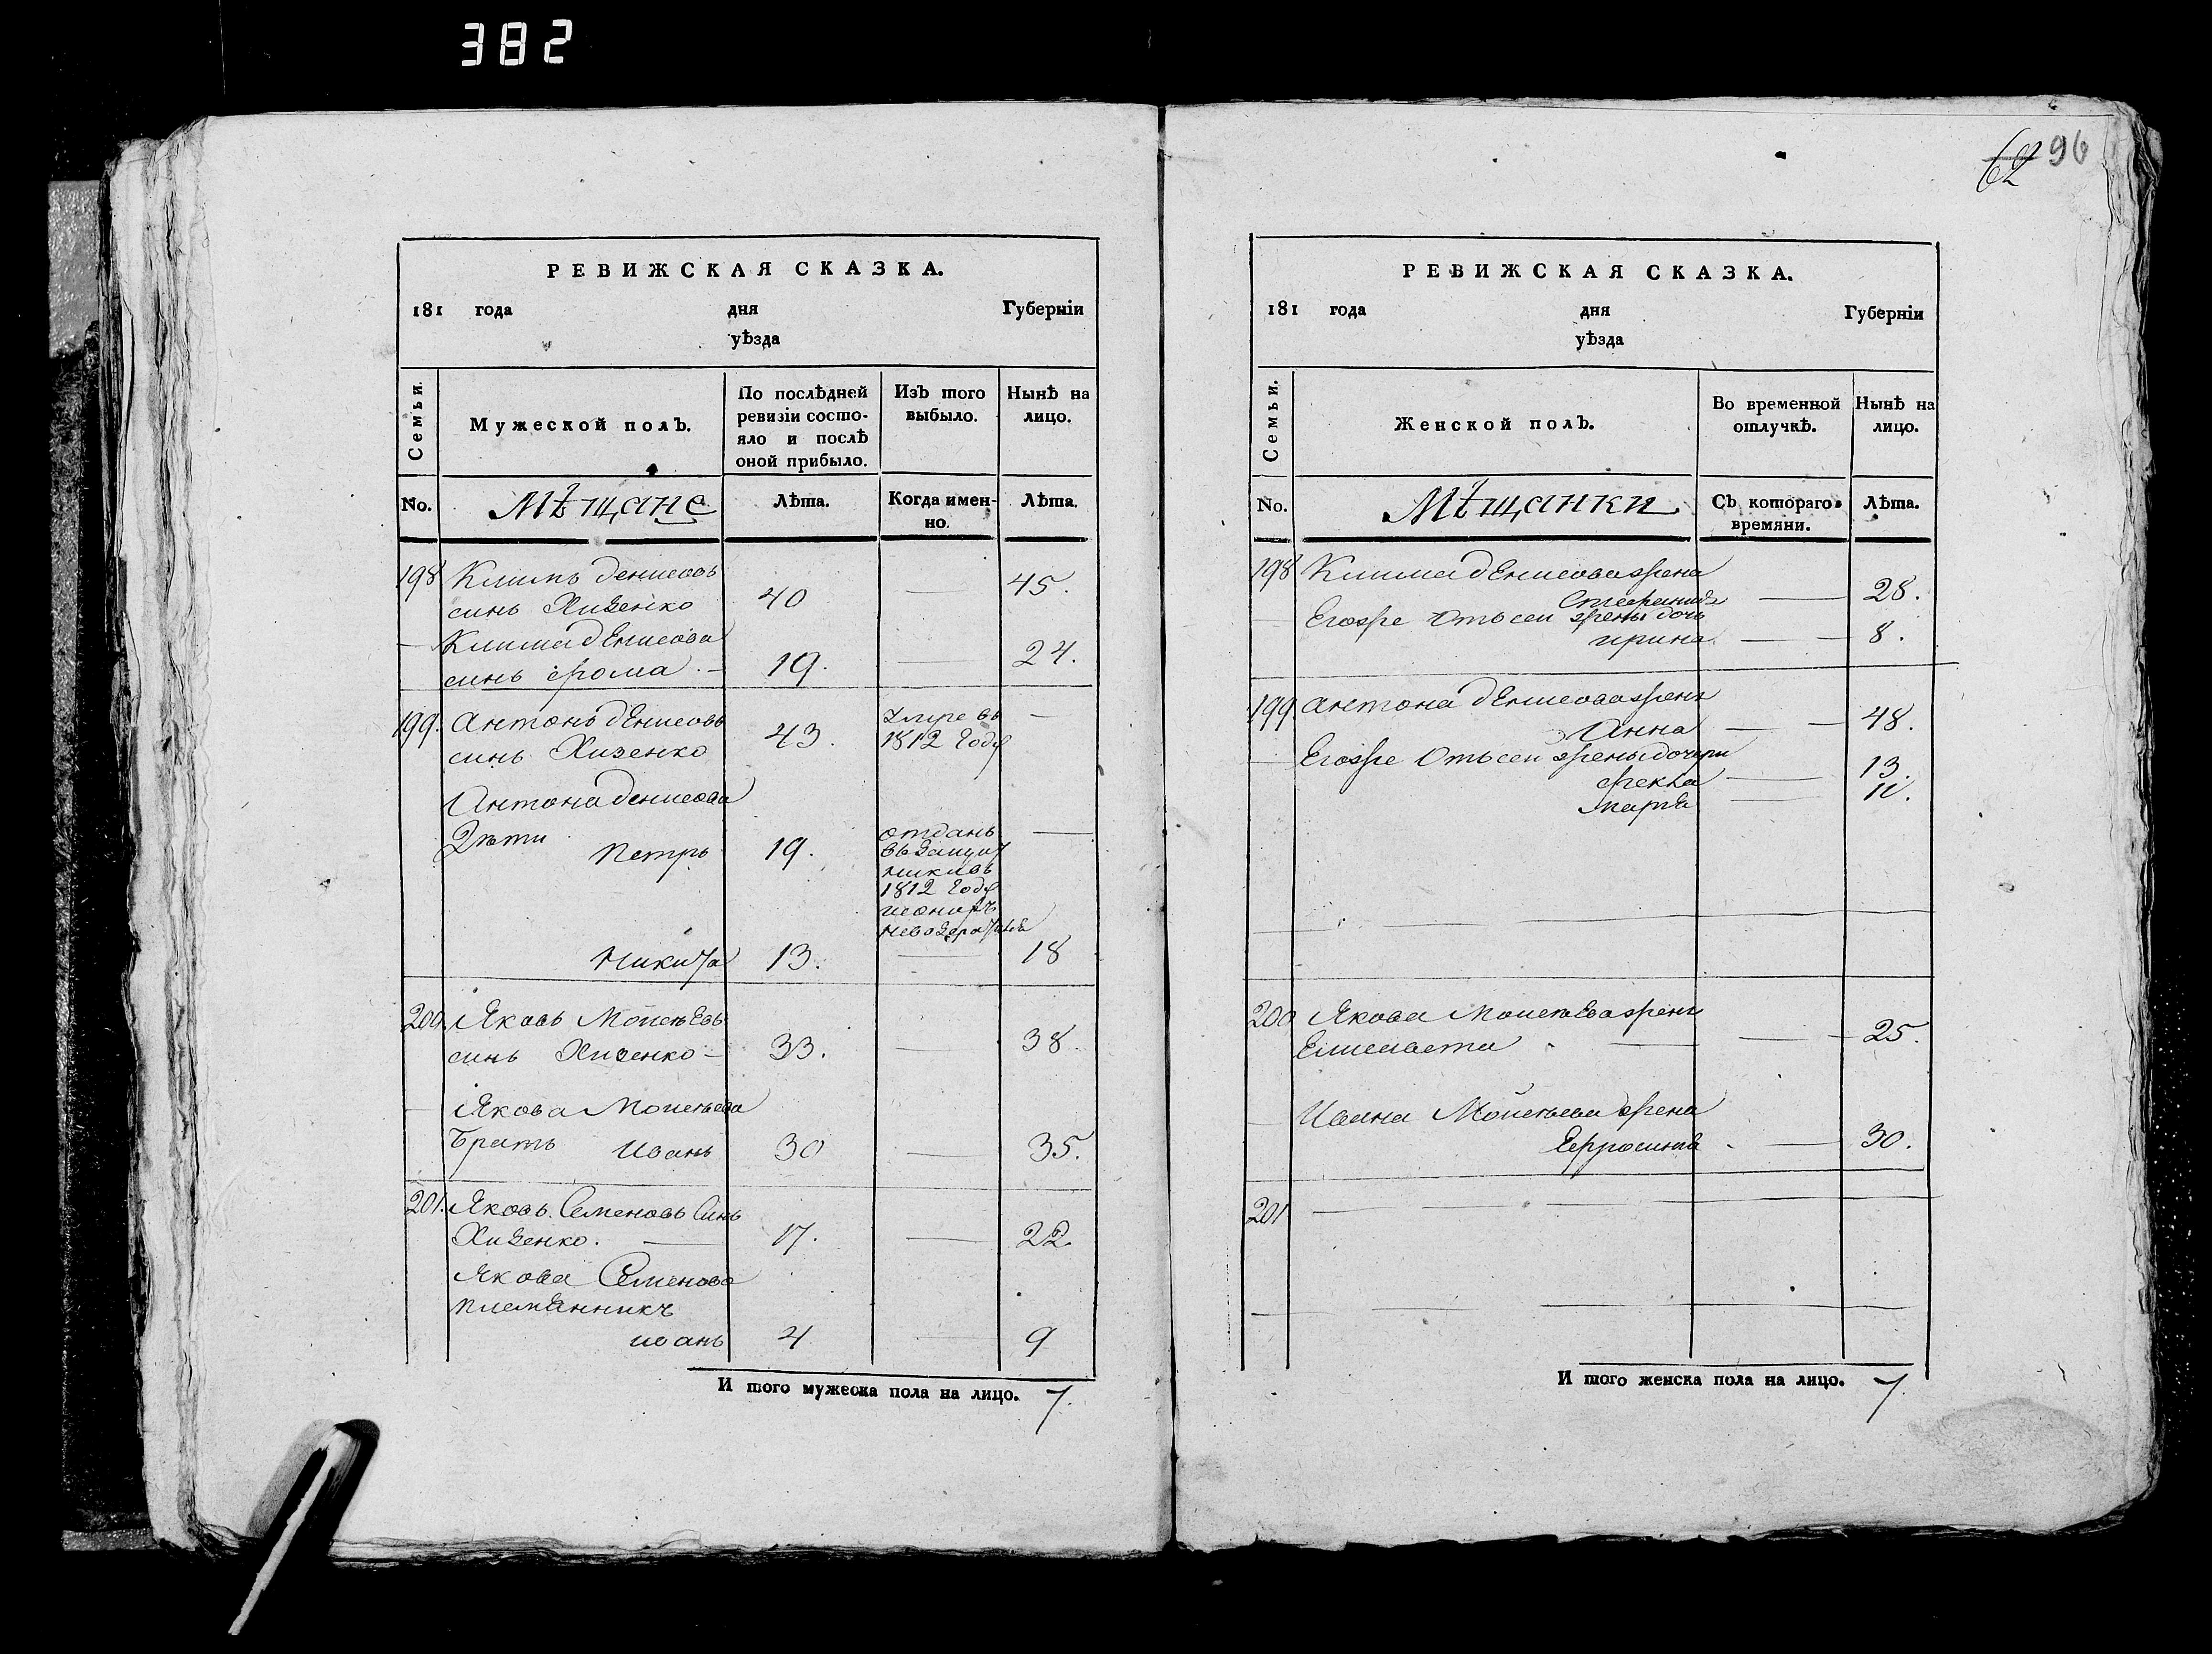 382
62 96
РЕВИЖСКАЯ СКАЗКА.
181 года дня Губерніи
уѣзда
Семьи.
Мужеской полъ.
По послѣдней
ревизіи состо-
яло и послѣ
оной прибыло.
Изъ того
выбыло.
Нынѣ на
лицо.
No. Мѣщане Лѣта. Когда имен-
но. Лѣта.
198 Климъ денисовъ
синъ Хизенко 40 — 45.
— Клима денисова
синъ фома — 19. — 24.
199. Антонъ денисовъ
синъ Хизенко 43. умре въ
1812 Году —
Антона денисова
Дѣти Петръ 19. отданъ
1812 Году —
Никита 13. — 18
200. Яковъ Мойсѣевъ
синъ Хизенко — 33. — 38.
— Якова Мойсѣева
братъ Иванъ 30 — 35.
201. Яковъ Семеновъ Синъ
Хизенко. — 17. — 22.
Якова Семенова
племянникъ
иванъ 4 — 9
И того мужеска пола на лицо. 7.
РЕВИЖСКАЯ СКАЗКА.
181 года дня Губерніи
уѣзда
Семьи.
Женской полъ.
Во временной
отлучкѣ.
Нынѣ на
лицо.
No. Мѣщанки Съ котораго
времяни. Лѣта.
198 Клима денисова жена
— 28.
Егожъ отъ сей жены дочь
ирина — — 8.
199 Антона денисова жена
Анна — — 48.
— Егожъ Отъ сей жены дочери
фекла — 13.
марья — 11.
200 Якова Мойсѣева жена
Елисавета — — — 25.
— Ивана Мойсѣева жена
Ефросинья — 30.
201 — — — —
И того женска пола на лицо. 7.